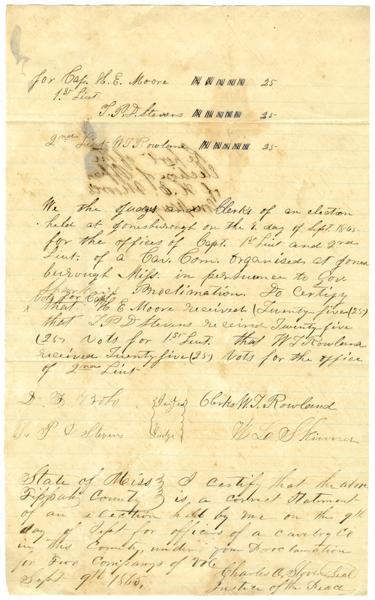 for Cap. H. E. Moore 25
1st Lieut
T. P. D. Stevens 25
2nd Lieut W. T. Rowland 25
We the Judges Clerks of an election
held at Jonesborough on the 9 day of Sept. 1865.
for the offices of Capt. 1st Lieut and 2nd
Lieut. of a Cav. Com. Organised at Jones
borough Miss. in persuance to Gov
Proclimation. Do certify
vots for Capt
that H. E. Moore received (Twenty five (25)
that T. P. D. Stevens received Twenty five
(25) Vots for 1st Lieut. that W. T. Rowland
received Twenty five (25) Vots for the office
of 2nd Lieut
Judge Clerks W. T. Rowland
P. D. Stevens Judge W. L. Skinner
State of Miss
Tippah County I certify that the above
is a correct Statement
of an election held by me on the 9th
day of Sept for officers of a cavelry Co
in this County, under your Proclamation
for Two Companys of
Sept 9th 1865, Charles A. Seal
Justice of the Peace